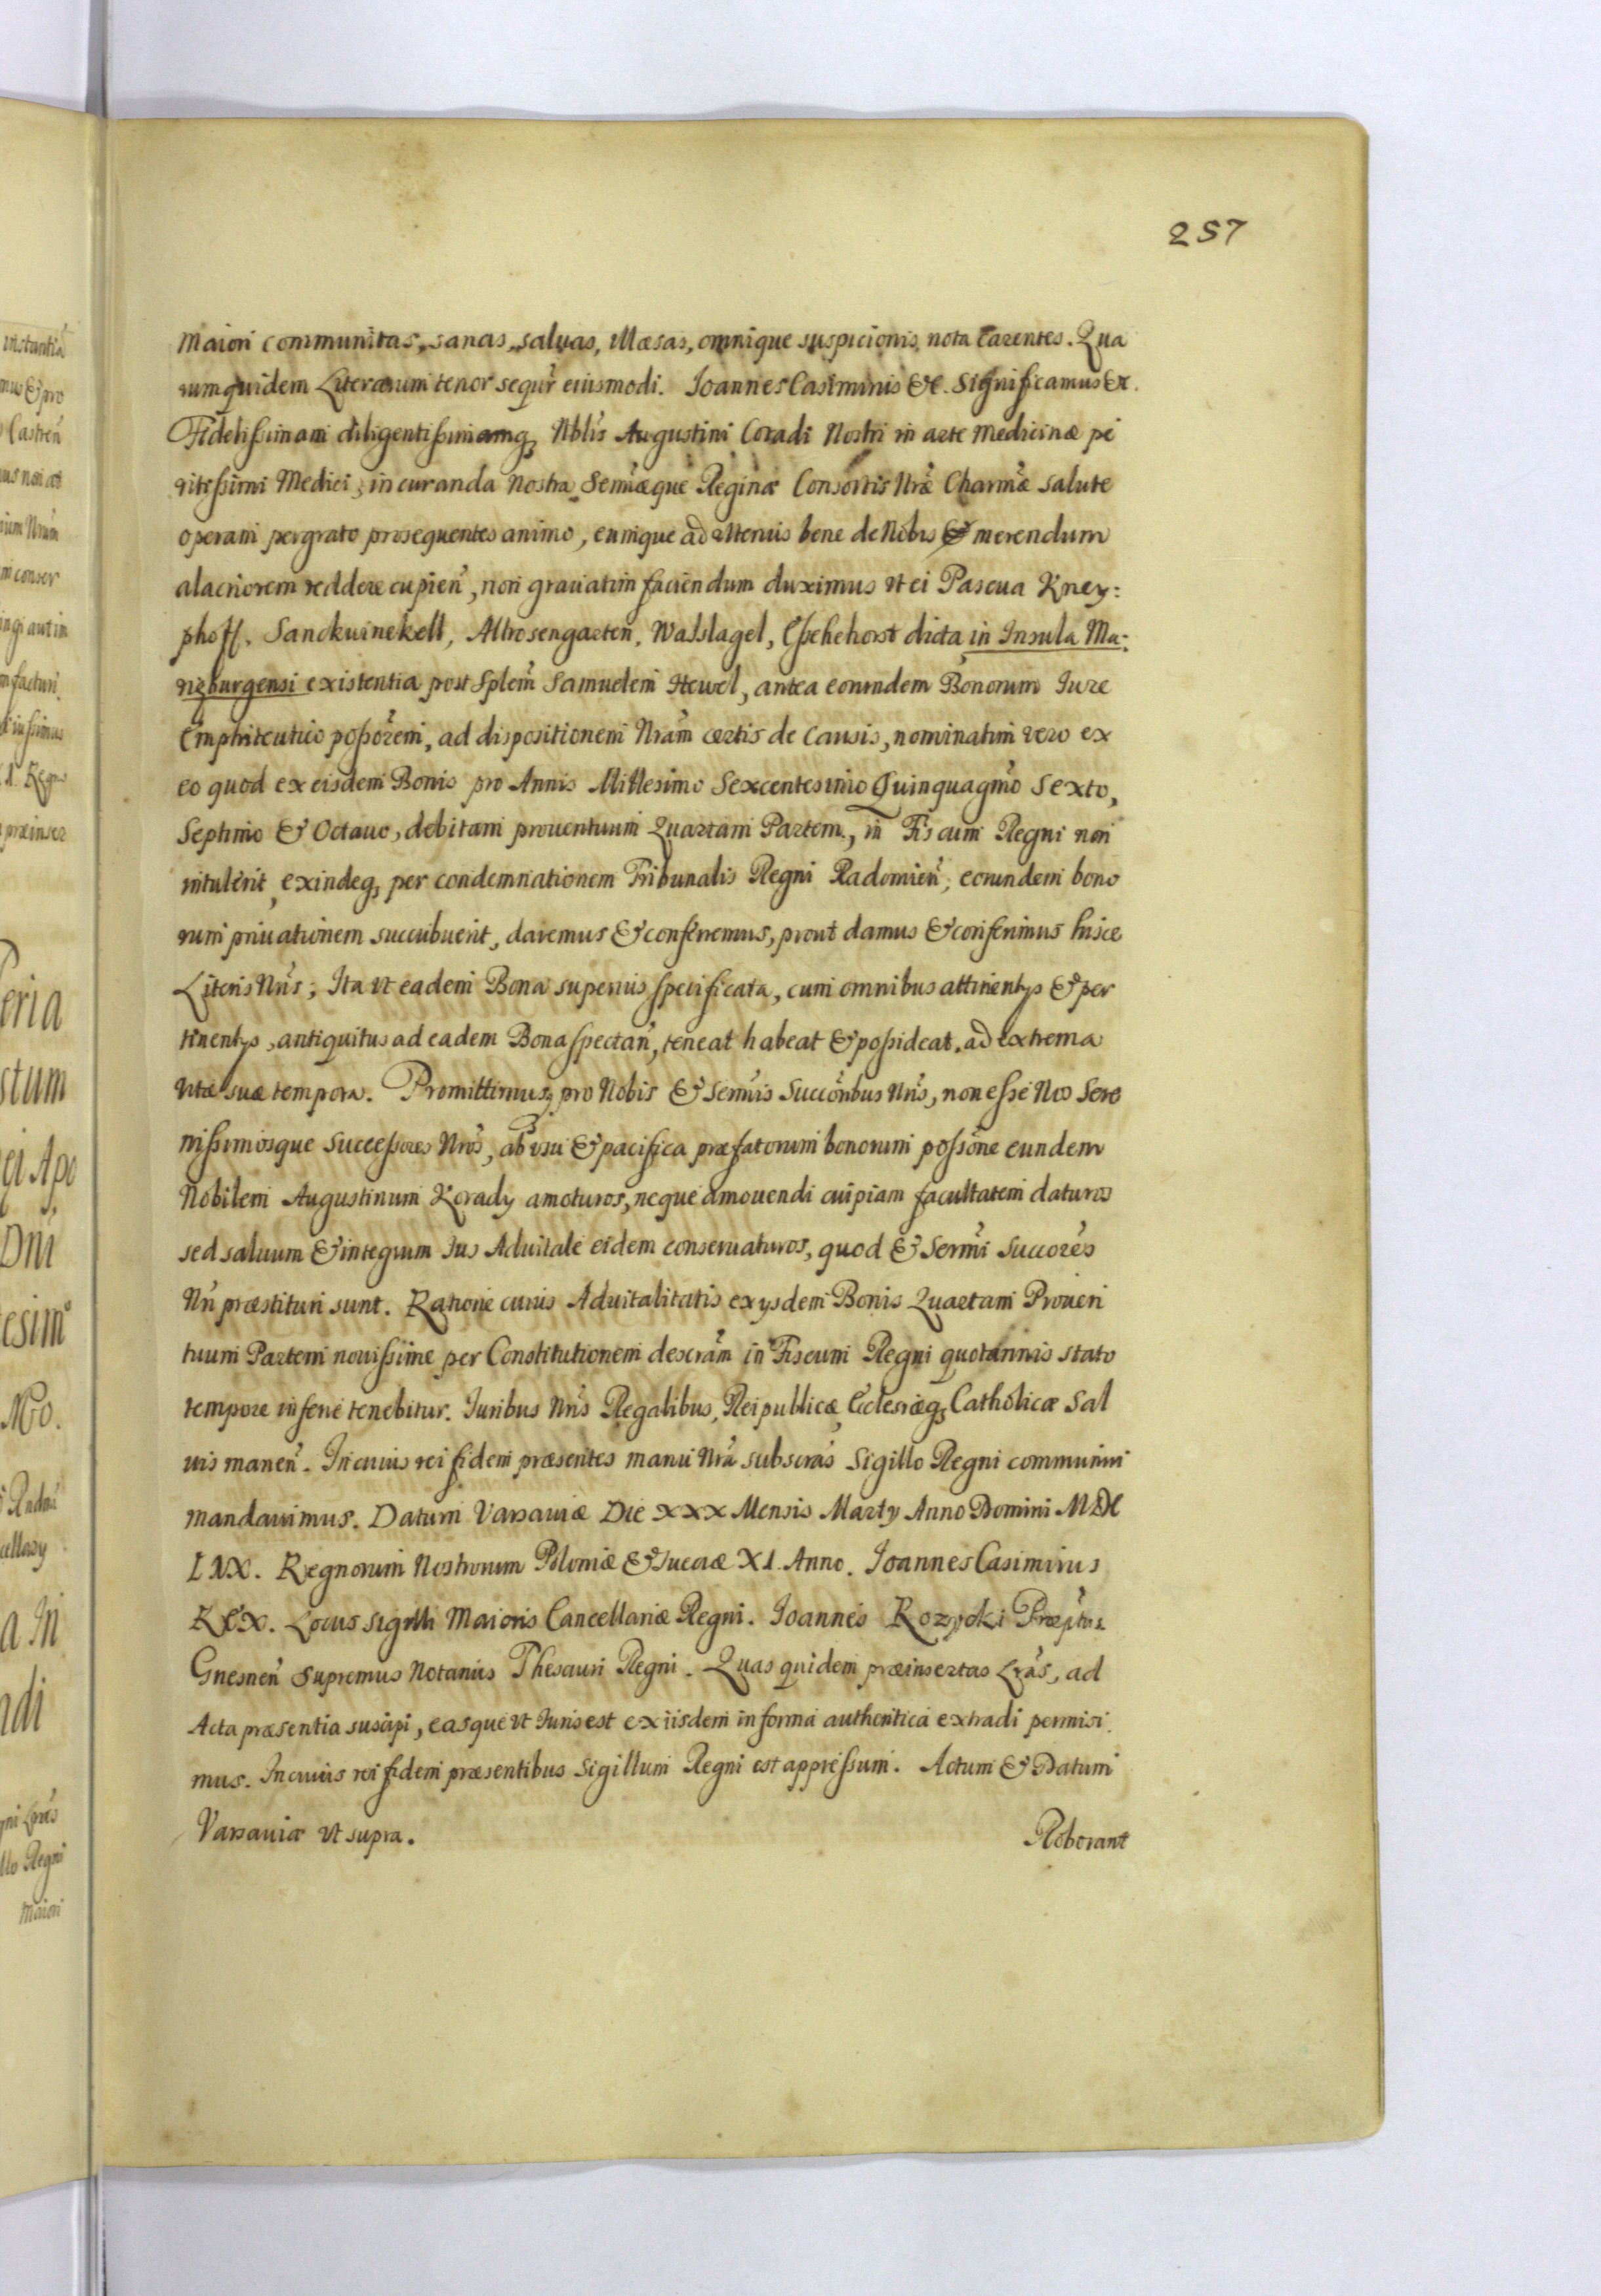 257
maiori communitas, sanas, saluas, illæsas, omnique suspicionis nota carentes. Qua
rum quidem Literarum tenor sequr̃ eiusmodi. Joannes Casimirus &c. Significamus &c.
Fidelissimam diligentissimamq; Nbl̃is Augustini Coradi Nostri in arte medicinæ pe
ritissimi Medici, in curanda Nostra Serm̃æque Reginæ Consortis Nræ̃ Charm̃æ salute
operam pergrato prosequentes animo, eumque ad ulterius bene de Nobis & merendum
alacriorem reddere cupien̄, non grauatim faciendum duximus ut ei Pascua Kney:
phoff, Sanckwinekell, Altrosengarten, Wasslagel, Eschehorst dicta in Insula Ma:
rizburgensi existentia post Splem̃ Samuelem Hewel, antea eorundem Bonorum Jure
Emphiteutico possorẽm, ad dispositionem Nram̃ certis de causis, nominatim vero ex
eo quod ex eisdem Bonis pro Annis Millesimo Sexcentesimo Quinquagm̃o Sexto,
Septimo & Octauo, debitam prouentuum Quartam Partem, in Fiscum Regni non
intulerit, exindeq; per condemnationem Tribunalis Regni Radomien̄, eorundem bono
rum priuationem succubuerit, daremus & conferremus, prout damus & conferimus hisce
Literis Nris̃; Ita ut eadem Bona superius specificata, cum omnibus attinentys & per
tinentys, antiquitus ad eadem Bona spectan̄, teneat habeat & possideat, ad extrema
vitæ suæ tempora. Promittimusq; pro Nobis & Serm̃is Succorĩbus Nris̃, non esse Nos Sere
nissimosque Successores Nros̃, ab usu & pacifica præfatorum bonorum possioñe eundem
Nobilem Augustinum Korady amoturos, neque amouendi cuipiam facultatem daturos
sed saluum & integrum Jus Aduitale eidem conseruaturos, quod & Serm̃i Succorẽs
Nri̇̃ præstituri sunt. Ratione cuius Aduitalitatis ex ysdem Bonis Quartam Prouen
tuum Partem nouissime per Constitutionem descram̃ in Fiscum Regni quotannis stato
tempore inferre tenebitur. Juribus Nris̃ Regalibus, Reipublicæ, Ecclesiæq; Catholicæ sal
uis manen̄. In cuius rei fidem præsentes manu Nra̅ subscras̃ Sigillo Regni communiri
mandauimus. Datum Varsauiæ Die XXX Mensis Marty Anno Domini MDC
LIX. Regnorum Nostrorum Poloniæ & Sueciæ XI. Anno. Joannes Casimirus
REX. Locus sigilli Maioris Cancellariæ Regni. Joannes Rozycki Præptus
Gnesnen̄ Supremus Notarius Thesauri Regni. Quas quidem præinsertas Lrãs, ad
Acta præsentia suscipi, easque ut Juris est ex iisdem in forma authentica extradi permisi
mus. In cuius rei fidem præsentibus Sigillum Regni est appressum. Actum & Datum
Varsauiæ ut supra.
Roborant